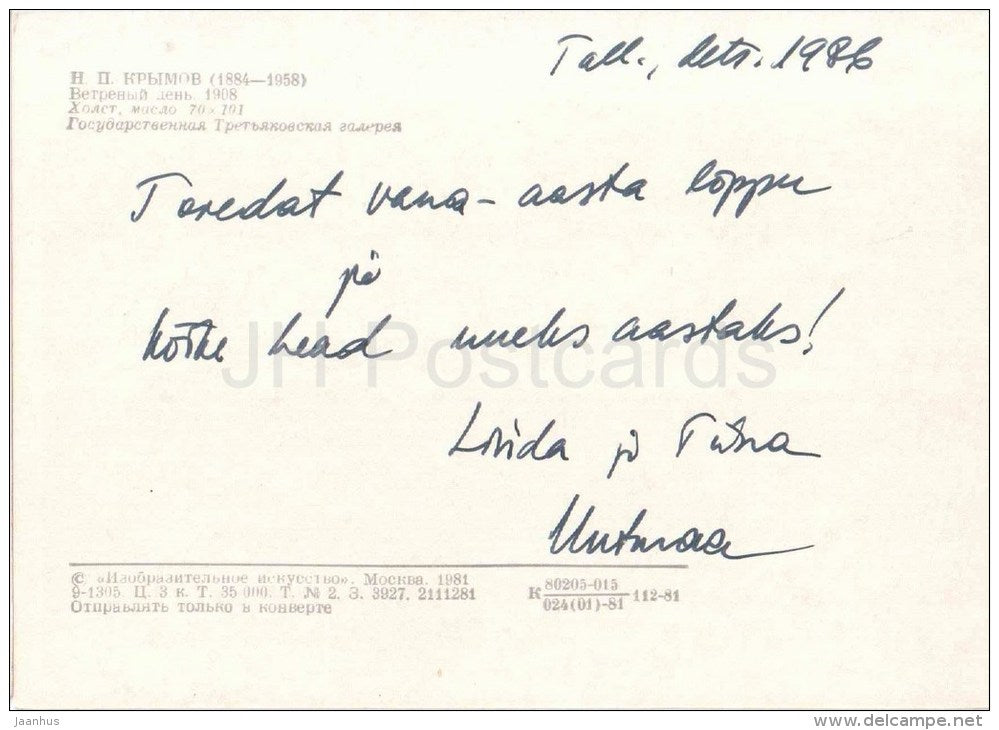 Tall., dets. 1986
Н. П. КРЫМОВ (1884—1958)
Ветреный день. 1908
Холст, масло 70×101
Государственная Третьяковская галерея
Toredat vana-aasta lõppu
ja
kõike head uueks aastaks!
JH Postcards
ja Tiina
Uutmaa
© «Изобразительное искусство». Москва. 1981
9-1305. Ц. 3 к. Т. 35 000. Т. № 2. З. 3927. 2111281
Отправлять только в конверте
К 80205-015/024(01)-81 112-81
Jaanhus
www.delcampe.net